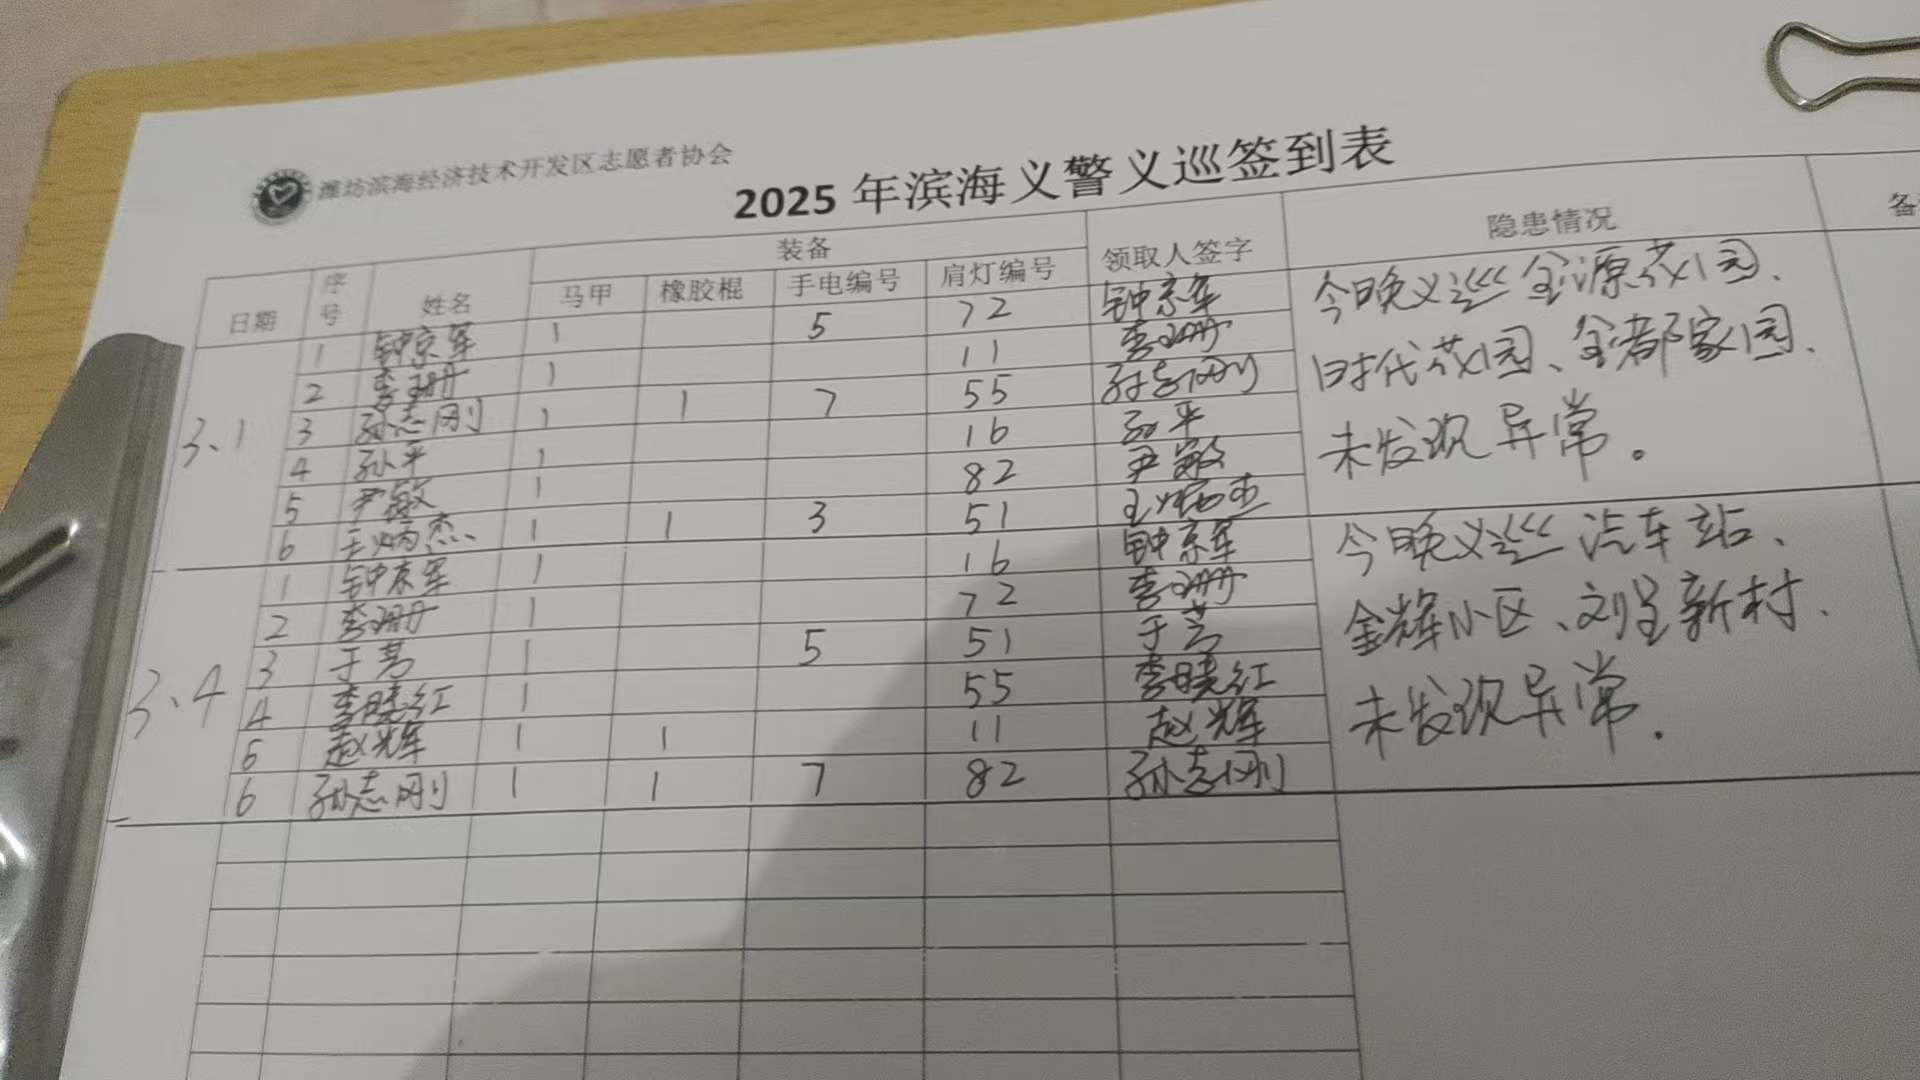 潍坊滨海经济技术开发区志愿者协会
2025年滨海义警义巡签到表
日期 序号 姓名 装备 领取人签字 隐患情况 备
马甲 橡胶棍 手电编号 肩灯编号
3.1
1 钟京军 1 5 72 钟京军
2 李珊 1 11 李珊
3 孙志刚 1 1 7 55 孙志刚
4 孙平 1 16 孙平
5 尹敏 1 82 尹敏
6 王炳杰 1 1 3 51 王炳杰
今晚义巡金源花园、
时代花园、金都家园、
未发现异常。
3.4
1 钟京军 1 16 钟京军
2 李珊 1 72 李珊
3 于 1 5 51 于
4 李晓红 1 55 李晓红
5 赵辉 1 1 11 赵辉
6 孙志刚 1 1 7 82 孙志刚
今晚义巡汽车站、
金辉小区、刘呈新村、
未发现异常.